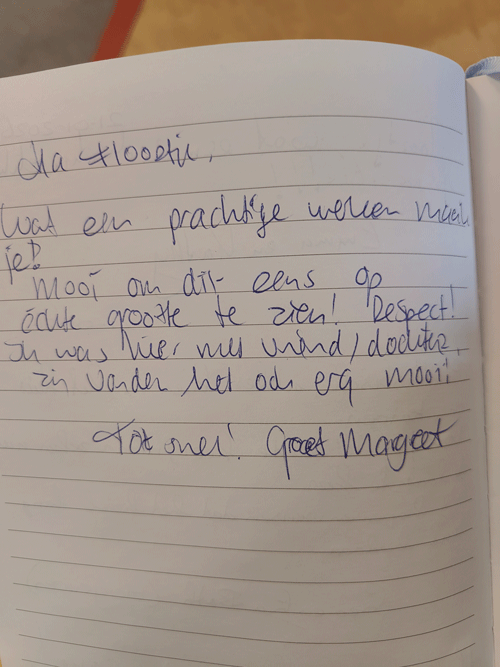 Ha Floortje,
Wat een prachtige werken maak
je!
Mooi om dit eens op
échte grootte te zien! Respect!
Ik was hier met vriend/dochter,
zij vonden het ook erg mooi!
Tot snel! Groet Margeet